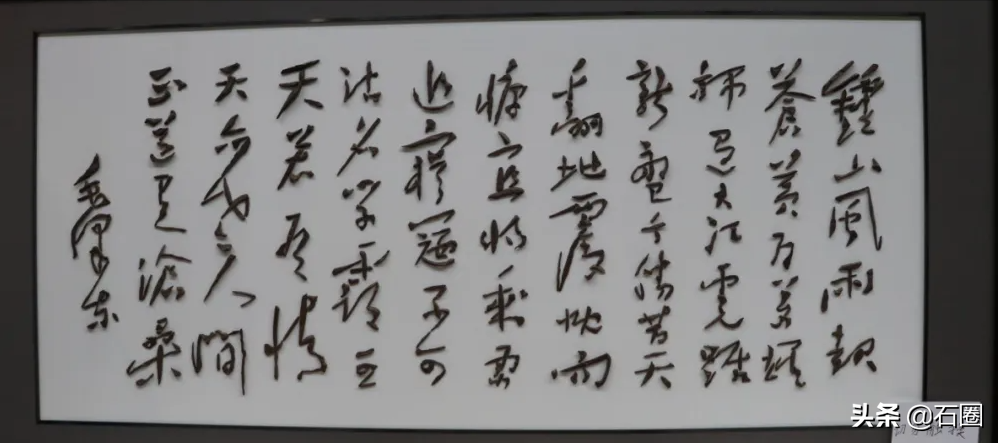 鍾山風雨起
蒼黃百萬雄
師過大江虎踞
龍盤今勝昔天
翻地覆慨而
慷宜將剩勇
追窮寇不可
沽名學霸王
天若有情
天亦老人間
正道是滄桑
毛澤東
头条 @石圈